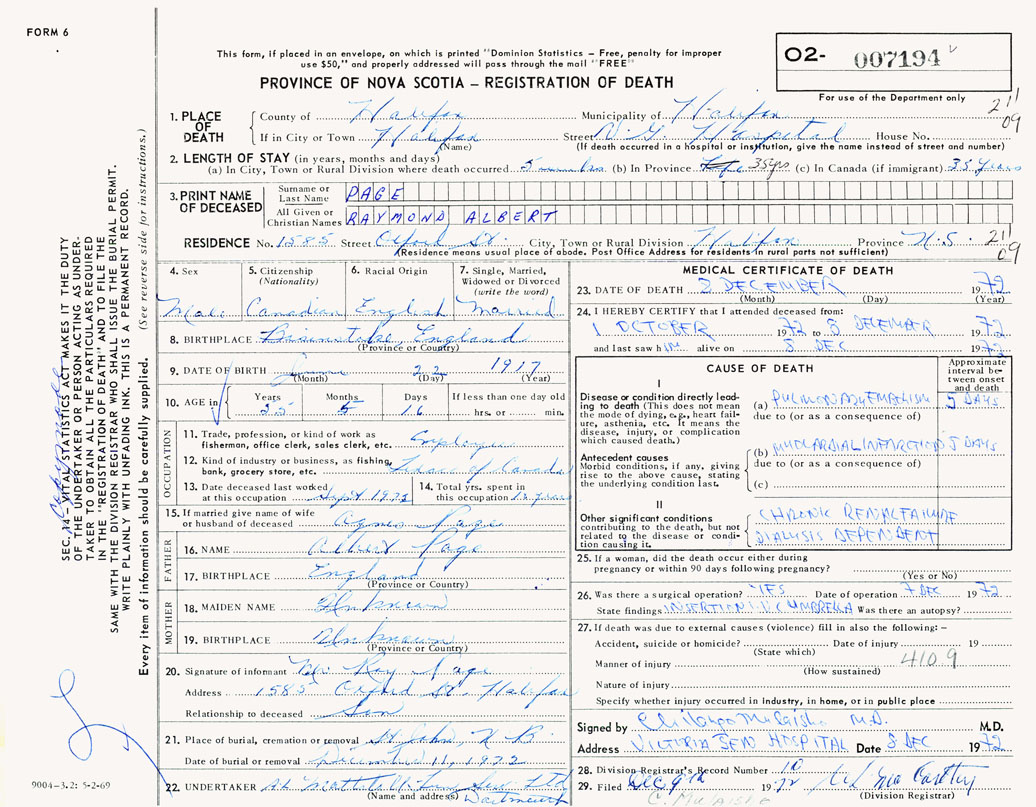 FORM 6
This form, if placed in an envelope, on which is printed "Dominion Statistics – Free, penalty for improper
use $50," and properly addressed will pass through the mail "FREE"
PROVINCE OF NOVA SCOTIA – REGISTRATION OF DEATH
O2- 007194
For use of the Department only
211
09
1. PLACE OF DEATH
County of Halifax Municipality of Halifax
If in City or Town Halifax Street V.G. Hospital House No.
(Name) (If death occurred in a hospital or institution, give the name instead of street and number)
2. LENGTH OF STAY (in years, months and days)
(a) In City, Town or Rural Division where death occurred 5 months (b) In Province 35yrs (c) In Canada (if immigrant) 35 years
3. PRINT NAME OF DECEASED
Surname or Last Name PAGE
All Given or Christian Names RAYMOND ALBERT
RESIDENCE No. 1585 Street Oxford St. City, Town or Rural Division Halifax Province N.S. 211
09
(Residence means usual place of abode. Post Office Address for residents in rural parts not sufficient)
4. Sex
Male
5. Citizenship (Nationality)
Canadian
6. Racial Origin
English
7. Single, Married, Widowed or Divorced (write the word)
Married
8. BIRTHPLACE England
(Province or Country)
9. DATE OF BIRTH June 22 1917
(Month) (Day) (Year)
10. AGE in
Years Months Days If less than one day old
55 5 16 hrs. or min.
OCCUPATION
11. Trade, profession, or kind of work as fisherman, office clerk, sales clerk, etc. Employee
12. Kind of industry or business, as fishing, bank, grocery store, etc. of Canada
13. Date deceased last worked at this occupation Sept 1972
14. Total yrs. spent in this occupation years
15. If married give name of wife or husband of deceased Agnes Page
FATHER
16. NAME Albert Page
17. BIRTHPLACE England
(Province or Country)
MOTHER
18. MAIDEN NAME Unknown
19. BIRTHPLACE Unknown
(Province or Country)
20. Signature of informant Roy Page
Address 1585 Oxford St. Halifax
Relationship to deceased Son
21. Place of burial, cremation or removal St. John, N.B.
Date of burial or removal December 11, 1972
22. UNDERTAKER Ltd
(Name and address) Dartmouth
MEDICAL CERTIFICATE OF DEATH
23. DATE OF DEATH 8 DECEMBER 1972
(Month) (Day) (Year)
24. I HEREBY CERTIFY that I attended deceased from:
1 OCTOBER 1972 to 8 DECEMBER 1972
and last saw him alive on 8 DEC 1972
CAUSE OF DEATH
Approximate interval between onset and death
I
Disease or condition directly leading to death (This does not mean the mode of dying, e.g., heart failure, asthenia, etc. It means the disease, injury, or complication which caused death.)
(a) PULMONARY EMBOLISM 5 DAYS
due to (or as a consequence of)
Antecedent causes
Morbid conditions, if any, giving rise to the above cause, stating the underlying condition last.
(b) MYOCARDIAL INFARCTION 5 DAYS
due to (or as a consequence of)
(c)
II
Other significant conditions
contributing to the death, but not related to the disease or condition causing it.
CHRONIC RENAL FAILURE
DIALYSIS DEPENDENT
25. If a woman, did the death occur either during pregnancy or within 90 days following pregnancy?
(Yes or No)
26. Was there a surgical operation? YES Date of operation 7 DEC 1972
State findings INSERTION I.V.C UMBRELLA Was there an autopsy?
27. If death was due to external causes (violence) fill in also the following: –
Accident, suicide or homicide? Date of injury 19
(State which)
Manner of injury 4109
(How sustained)
Nature of injury
Specify whether injury occurred in industry, in home, or in public place
Signed by M.D. M.D.
Address VICTORIA GEN HOSPITAL Date 8 DEC 1972
28. Division Registrar's Record Number 10
29. Filed Dec 9th 1972
(Division Registrar)
SEC. 14 – VITAL STATISTICS ACT MAKES IT THE DUTY
OF THE UNDERTAKER OR PERSON ACTING AS UNDER-
TAKER TO OBTAIN ALL THE PARTICULARS REQUIRED
IN THE "REGISTRATION OF DEATH" AND TO FILE THE
SAME WITH THE DIVISION REGISTRAR WHO SHALL ISSUE THE BURIAL PERMIT.
WRITE PLAINLY WITH UNFADING INK. THIS IS A PERMANENT RECORD.
Every item of information should be carefully supplied. (See reverse side for instructions.)
9004–3.2: 5-2-69